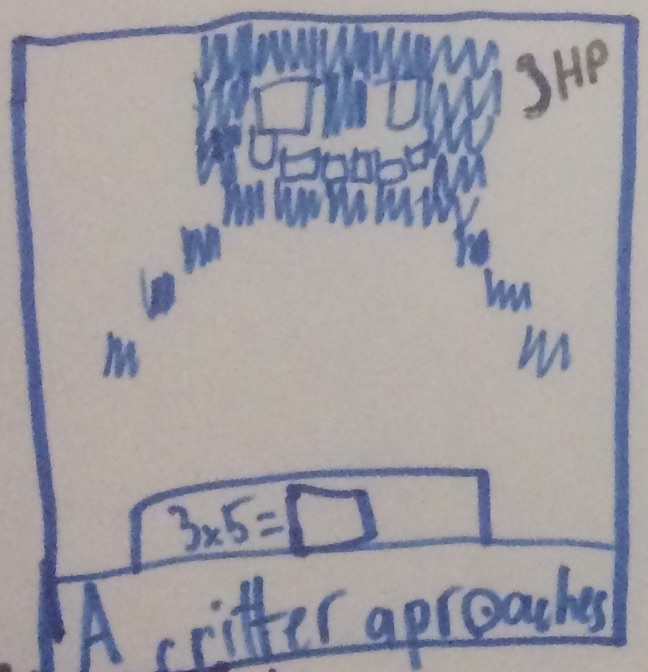 3HP
3x5=
A critter aproaches